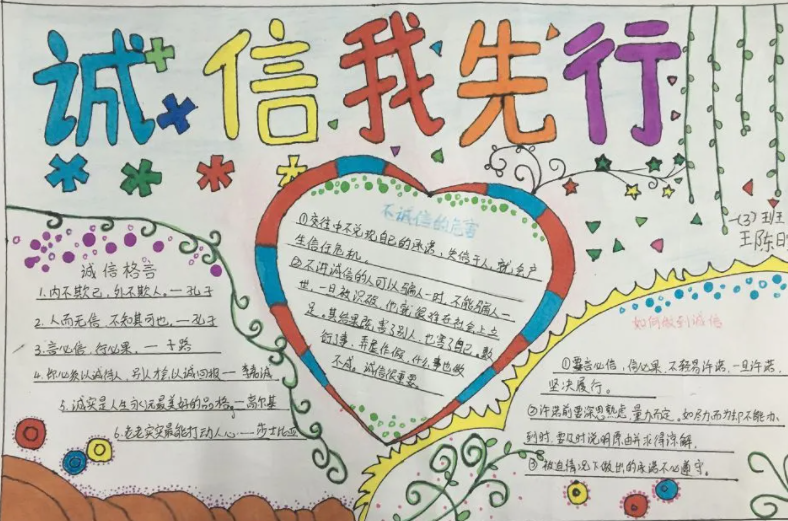 诚信我先行
一(3)班
王陈
诚信格言
1.内不欺己,外不欺人。—孔子
2.人而无信,不知其可也。—孔子
3.言必信,行必果。— 子路
4.你必须以诚待人,别人才会以诚回报— 李嘉诚
5.诚实是人生永远最美好的品格。—高尔基
6.老老实实最能打动人心——莎士比亚
不诚信的危害
①交往中不兑现自己的承诺,失信于人,就会产
生信任危机。
②不讲诚信的人可以骗人一时,不能骗人一
世,一旦被识破,他就
足。其结果既害了别人,也害了自己。
弄虚作假,什么事也做
不成。诚信很重要
如何做到诚信
①要言必信,行必果,不轻易许诺,一旦许诺,
坚决履行。
②许诺前要深思熟虑,量力而定。如尽力而为却不能办
到时,要及时说明原由并求得谅解。
③被迫情况下做出的承诺不必遵守。